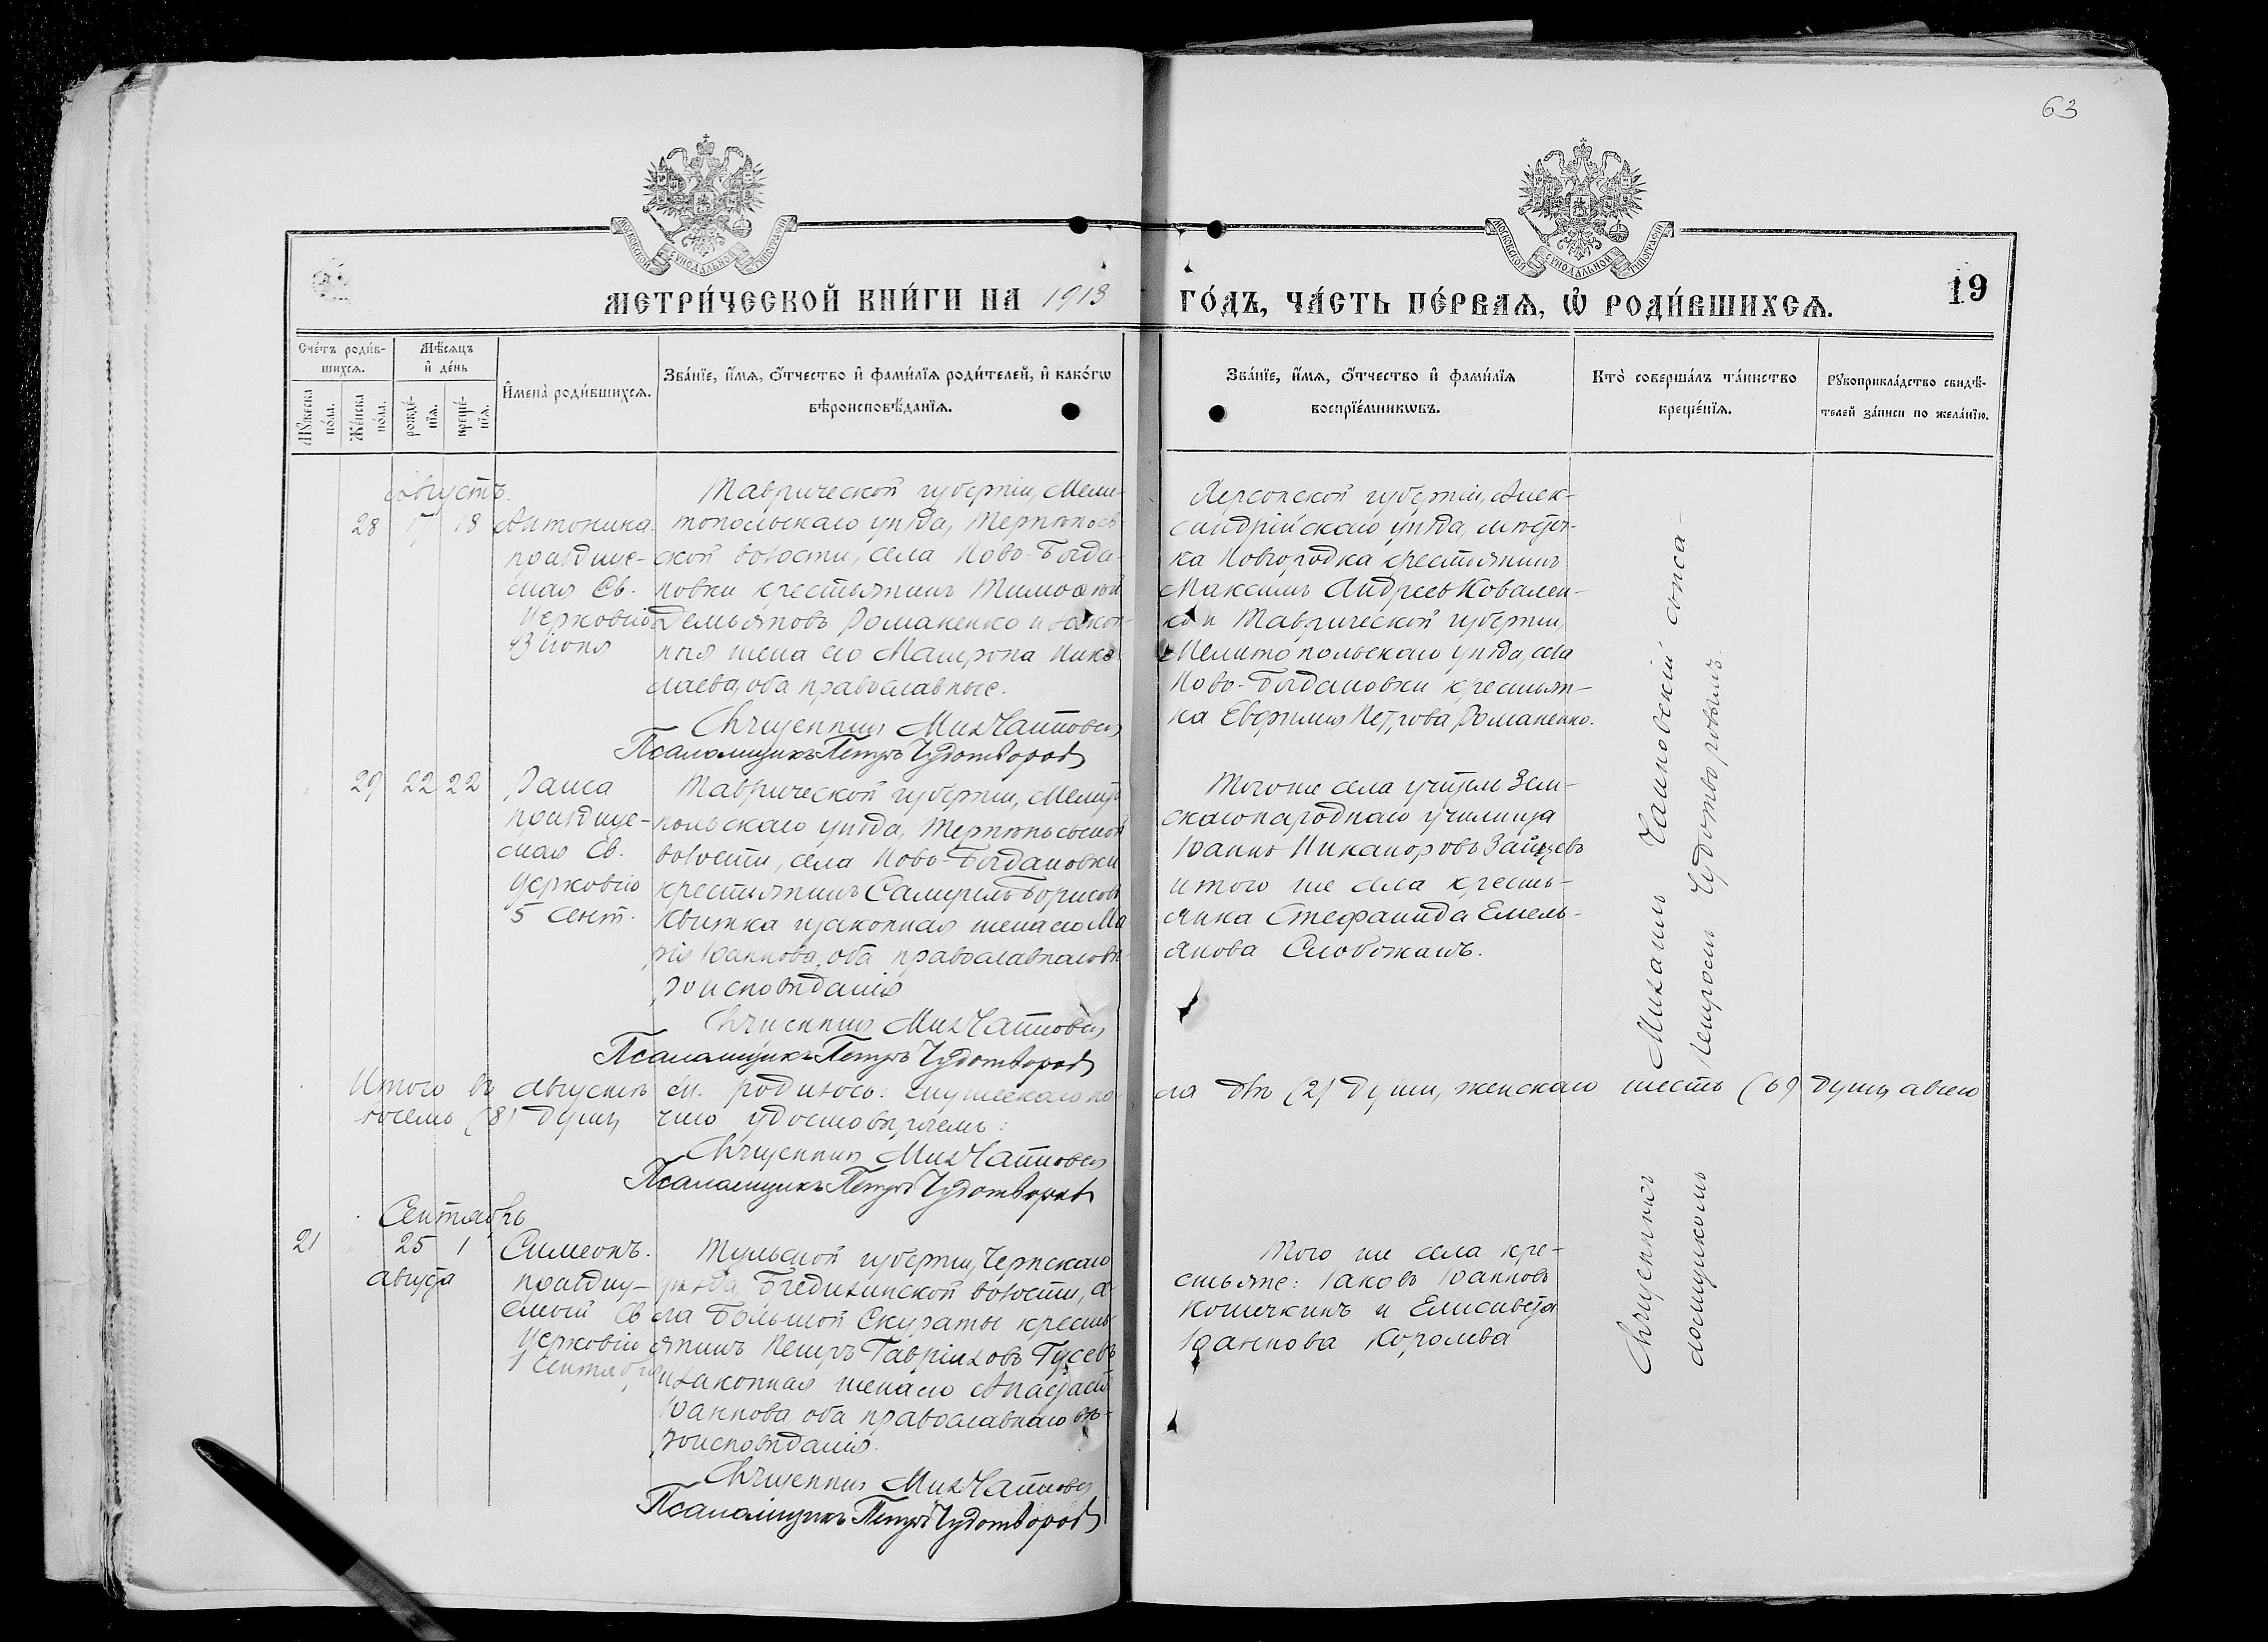 63
МОСКОВСКОЙ СУНОДАЛЬНОЙ ТИПОГРАФІИ
МОСКОВСКОЙ СУНОДАЛЬНОЙ ТИПОГРАФІИ
МЕТРИ́ЧЕСКОЙ КНИ́ГИ НА 1913 ГО́ДЪ, ЧА́СТЬ ПЕ́РВАѦ, Ѡ҆ РОДИ́ВШИХСѦ.
19
Сче́тъ роди́в-
шихсѧ.
Мꙋжеска по́ла.
Же́нска по́ла.
Мѣ́сѧцъ
и҆ де́нь
рожде́-
нїѧ.
креще́-
нїѧ.
И҆мена̀ роди́вшихсѧ.
Зва́нїе, и҆́мѧ, ѻ҆́тчество и҆ фами́лїѧ роди́телей, и҆ како́гѡ
вѣроисповѣ́данїѧ.
Зва́нїе, и҆́мѧ, ѻ҆́тчество и҆ фами́лїѧ
воспрїе́мникѡвъ.
Кто̀ соверша́лъ та́инство
креще́нїѧ.
Рꙋкоприкла́дство свидѣ́-
телей за́писи по жела́нїю.
Августъ.
28 17 18
Антонина
празднуе-
мая Св.
Церковію
13 іюня
Таврической губерніи, Мели-
топольскаго уѣзда, Терпѣньев
ской волости, села Ново-Богда-
новки крестьянинъ Тимоѳей
Демьяновъ Романенко и закон-
ная жена его Матрона Нико
лаева, оба православные.
Священник Мих Чайковск
Псаломщикъ Петръ Чудотворов
Херсонской губерніи, Алек-
сандрійскаго уѣзда, мѣстеч-
ка Новгородка крестьянинъ
Максимъ Андреевъ Ковален-
ко и Таврической губерніи,
Мелитопольскаго уѣзда, села
Ново-Богдановки крестьян-
ка Евфимія Петрова Романенко.
29 22 22
Раиса
празднуе-
мая Св.
Церковію
5 сент.
Таврической губерніи, Мелито
польскаго уѣзда, Терпѣньевской
волости, села Ново-Богдановки
крестьянинъ Самуилъ Борисовъ
Квитка и законная жена его Ма
рія Іоаннова, оба православнаго вѣ-
роисповѣданія
Священник Мих Чайковск
Псаломщикъ Петръ Чудотворов
Того же села учитель Зем-
скаго народнаго училища
Іоаннъ Никаноровъ Зайцевъ
и того же села кресть-
янка Стефанида Емель-
янова Слобожанъ.
Итого въ августѣ м. родилось: мужескаго по-ла двѣ (2) души, женскаго шесть (6) душъ, а всего
восемь (8) душъ, что удостовѣряемъ:
Священник Мих Чайковск
Псаломщикъ Петръ Чудотворов
Сентябрь
21 25 1
августа
Симеонъ.
празднуе-
емый Св
Церковію
1 сентября
Тульской губерніи, Чернскаго
уѣзда, Бредихинской волости, се-
ла Большой Скураты кресть-
янинъ Петръ Гавріиловъ Гусевъ
и законная жена его Анастасія
Іоаннова оба православнаго вѣ-
роисповѣданія.
Священник Мих Чайковск
Псаломщикъ Петръ Чудотворов
Того же села кре-
стьяне: Іаковъ Іоанновъ
Кошечкинъ и Елисавета
Іоаннова Королева
Священникъ Михаилъ Чайковскій съ пса-
ломщикомъ Петромъ Чудотворовымъ.